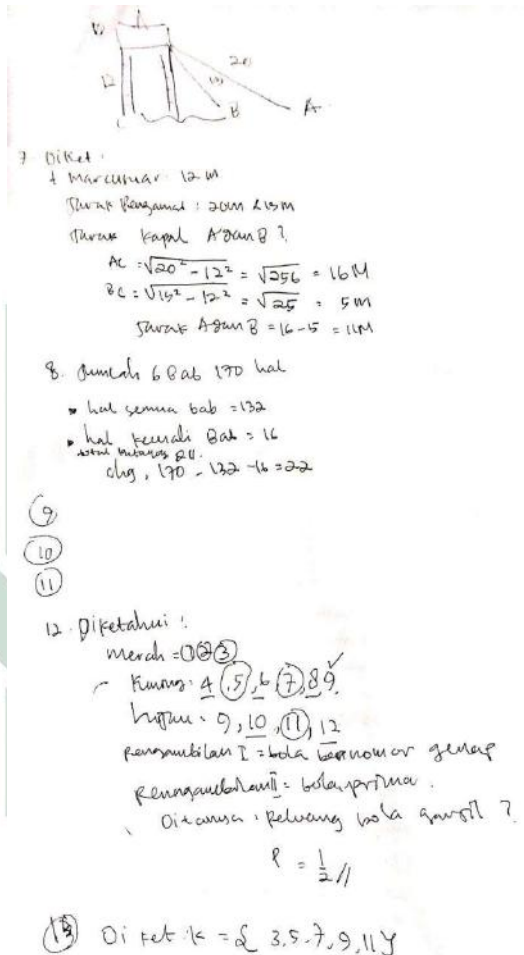 10
12
20
13
B
A
7. Diket :
t Marcusuar 12 m
Jarak Pengamat : 20m & 13m
Jarak Kapal A dan B ?
AC = √20² - 12² = √256 = 16 M
BC = √13² - 12² = √25 = 5 m
Jarak A dan B = 16 - 5 = 11M
8. Jumlah 6 Bab 170 hal
hal semua bab = 132
hal kecuali Bab = 16
shg, 170 - 132 - 16 = 22
9
10
11
12. Diketahui :
merah = 1 2 3
Kuning : 4, 5, 6, 7, 8 9
hijau : 9, 10, 11, 12
Pengambilan I = bola bernomor genap
Pengambilan II = bola prima.
Ditanya : Peluang bola ganjil ?
P = 1/2 //
13 Di ket : k = { 3.5.7,9,11 }